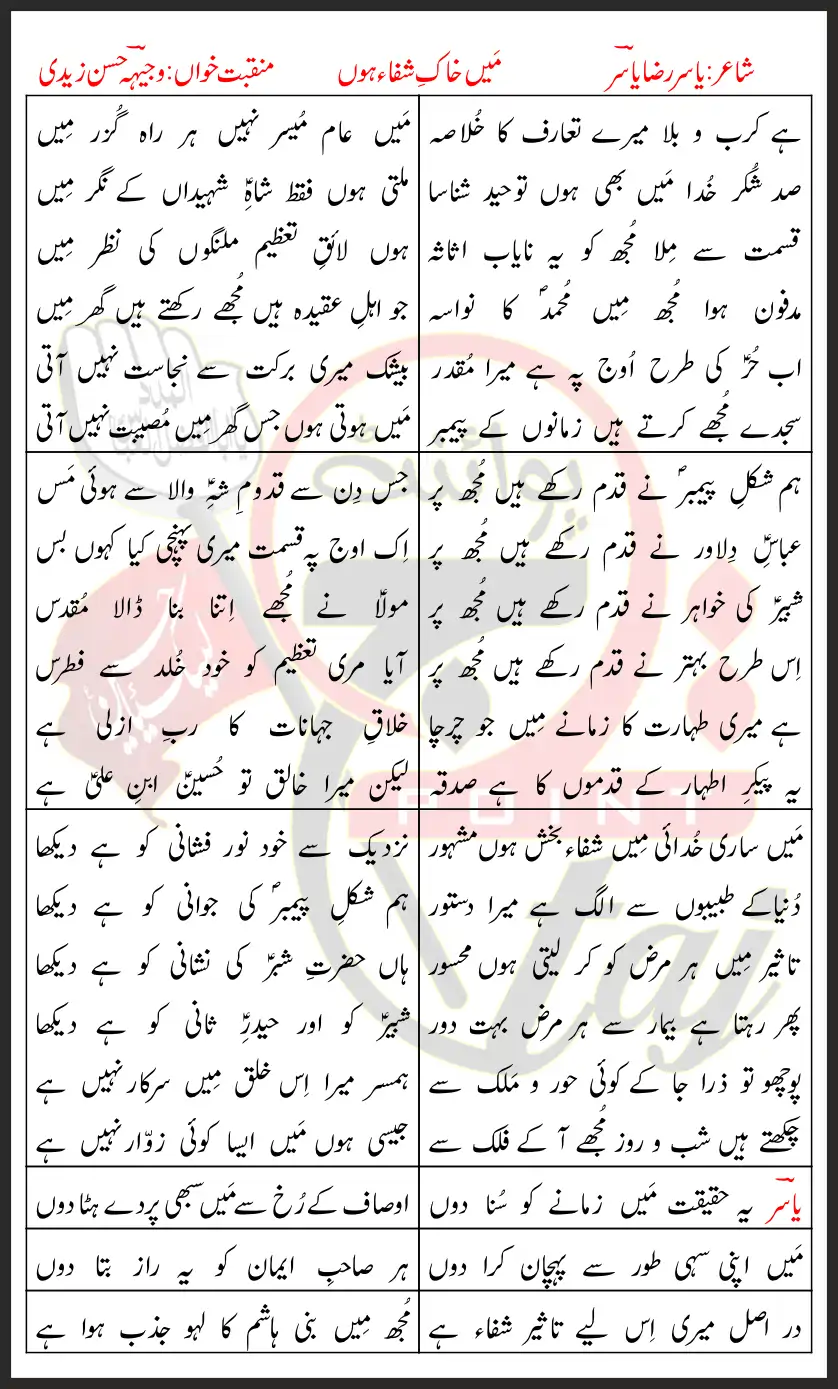 شاعر: یاسر رضا یاسرؔ
مَیں خاکِ شفاء ہوں
منقبت خواں: وجیہہؔ حسن زیدی
ہے کرب و بلا میرے تعارف کا خُلاصہ
صد شُکر خُدا مَیں بھی ہوں توحید شناسا
قسمت سے مِلا مُجھ کو یہ نایاب اثاثہ
مدفون ہوا مُجھ مِیں مُحمدؐ کا نواسہ
اب حُرؑ کی طرح اُوج پہ ہے میرا مُقدر
سجدے مُجھے کرتے ہیں زمانوں کے پیمبر
مَیں عام مُیسر نہیں ہر راہ گُزر مِیں
ملتی ہوں فقط شاہِؑ شہیداں کے نگر مِیں
ہوں لائقِ تعظیم ملنگوں کی نظر مِیں
جو اہلِ عقیدہ ہیں مُجھے رکھتے ہیں گھر مِیں
بیشک میری برکت سے نجاست نہیں آتی
مَیں ہوتی ہوں جس گھر مِیں مُصیبت نہیں آتی
ہم شکلِ پیمبرؐ نے قدم رکھے ہیں مُجھ پر
عباسِؑ دِلاور نے قدم رکھے ہیں مُجھ پر
شبیرؑ کی خواہر نے قدم رکھے ہیں مُجھ پر
اِس طرح بہتر نے قدم رکھے ہیں مُجھ پر
ہے میری طہارت کا زمانے مِیں جو چرچا
یہ پیکرِ اطہار کے قدموں کا ہے صدقہ
جس دِن سے قدومِ شہِؑ والا سے ہوئی مَس
اِک اوج پہ قسمت میری پہنچی کیا کہوں بس
مولاؑ نے مُجھے اِتنا بنا ڈالا مُقدس
آیا مری تعظیم کو خود خُلد سے فطرس
خلاقِ جہانات کا ربِ ازلی ہے
لیکن میرا خالق تو حُسینؑ ابنِ علیؑ ہے
مَیں ساری خُدائی مِیں شفاء بخش ہوں مشہور
دُنیا کے طبیبوں سے الگ ہے میرا دستور
تاثیر مِیں ہر مرض کو کر لیتی ہوں محسور
پھر رہتا ہے بیمار سے ہر مرض بہت دور
پوچھو تو ذرا جا کے کوئی حور و مَلک سے
چکھتے ہیں شب و روز مُجھے آ کے فلک سے
نزدیک سے خود نور فشانی کو ہے دیکھا
ہم شکلِ پیمبرؐ کی جوانی کو ہے دیکھا
ہاں حضرتِ شبرؑ کی نشانی کو ہے دیکھا
شبیرؑ کو اور حیدرِؑ ثانی کو ہے دیکھا
ہمسر میرا اِس خلق مِیں سرکار نہیں ہے
جیسی ہوں مَیں ایسا کوئی زوّار نہیں ہے
یاسرؔ یہ حقیقت مَیں زمانے کو سُنا دوں
اوصاف کے رُخ سے مَیں سبھی پردے ہٹا دوں
مَیں اپنی سہی طور سے پہچان کرا دوں
ہر صاحبِ ایمان کو یہ راز بتا دوں
در اصل میری اِس لیے تاثیر شفاء ہے
مُجھ مِیں بنی ہاشم کا لہو جذب ہوا ہے
پوائنٹ
POINT
taj